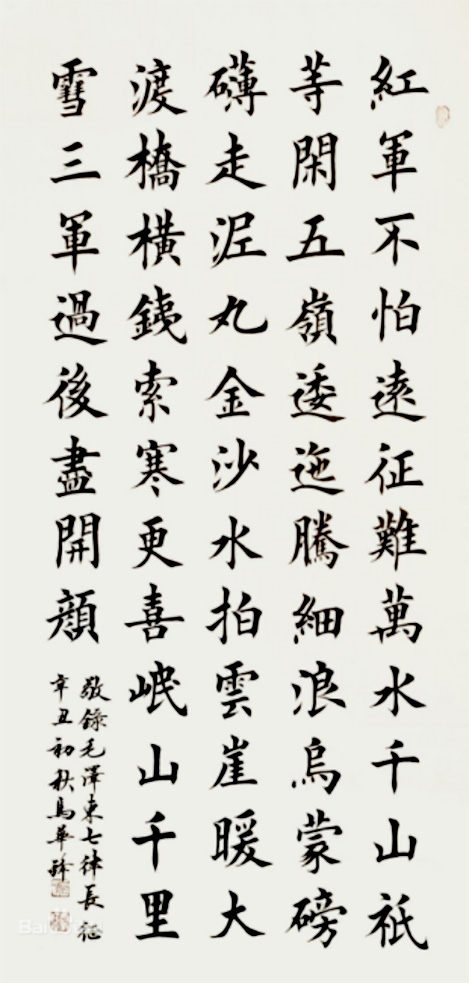 紅軍不怕遠征難萬水千山祇
等閑五嶺逶迤騰細浪烏蒙磅
礴走泥丸金沙水拍雲崖暖大
渡橋横銕索寒更喜岷山千里
雪三軍過後盡開顏
敬録毛澤東七律長征
辛丑初秋馬華